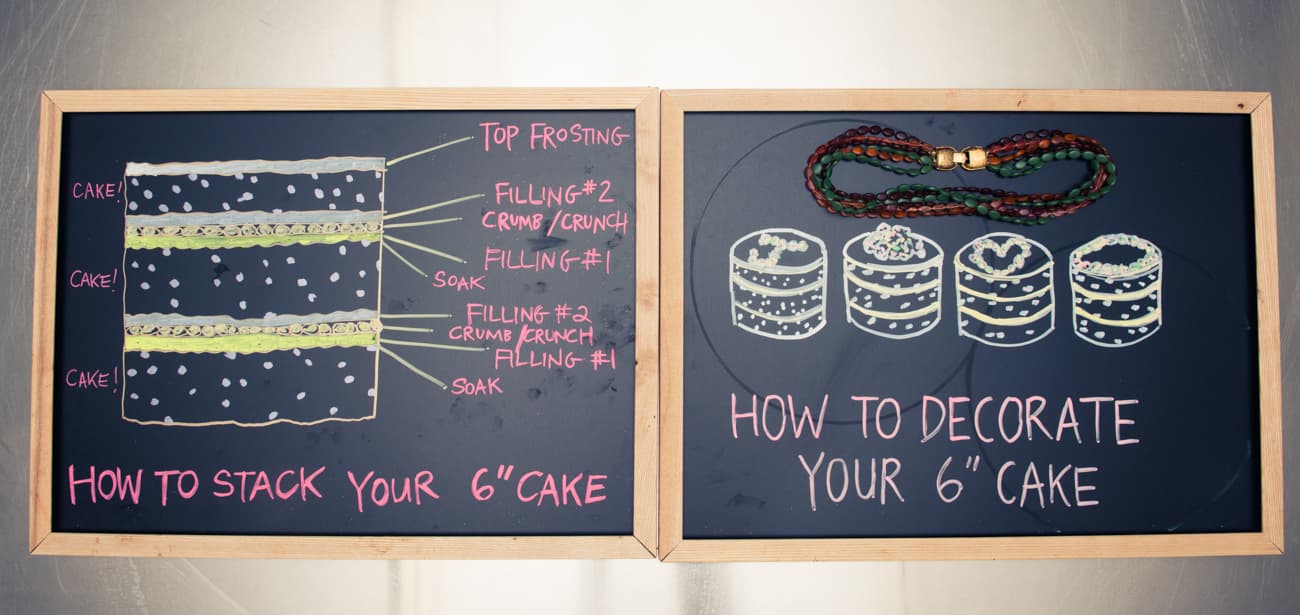 TOP FROSTING
CAKE!
FILLING #2
CRUMB/CRUNCH
FILLING #1
CAKE!
SOAK
FILLING #2
CRUMB/CRUNCH
FILLING #1
CAKE!
SOAK
HOW TO STACK YOUR 6" CAKE
HOW TO DECORATE
YOUR 6" CAKE